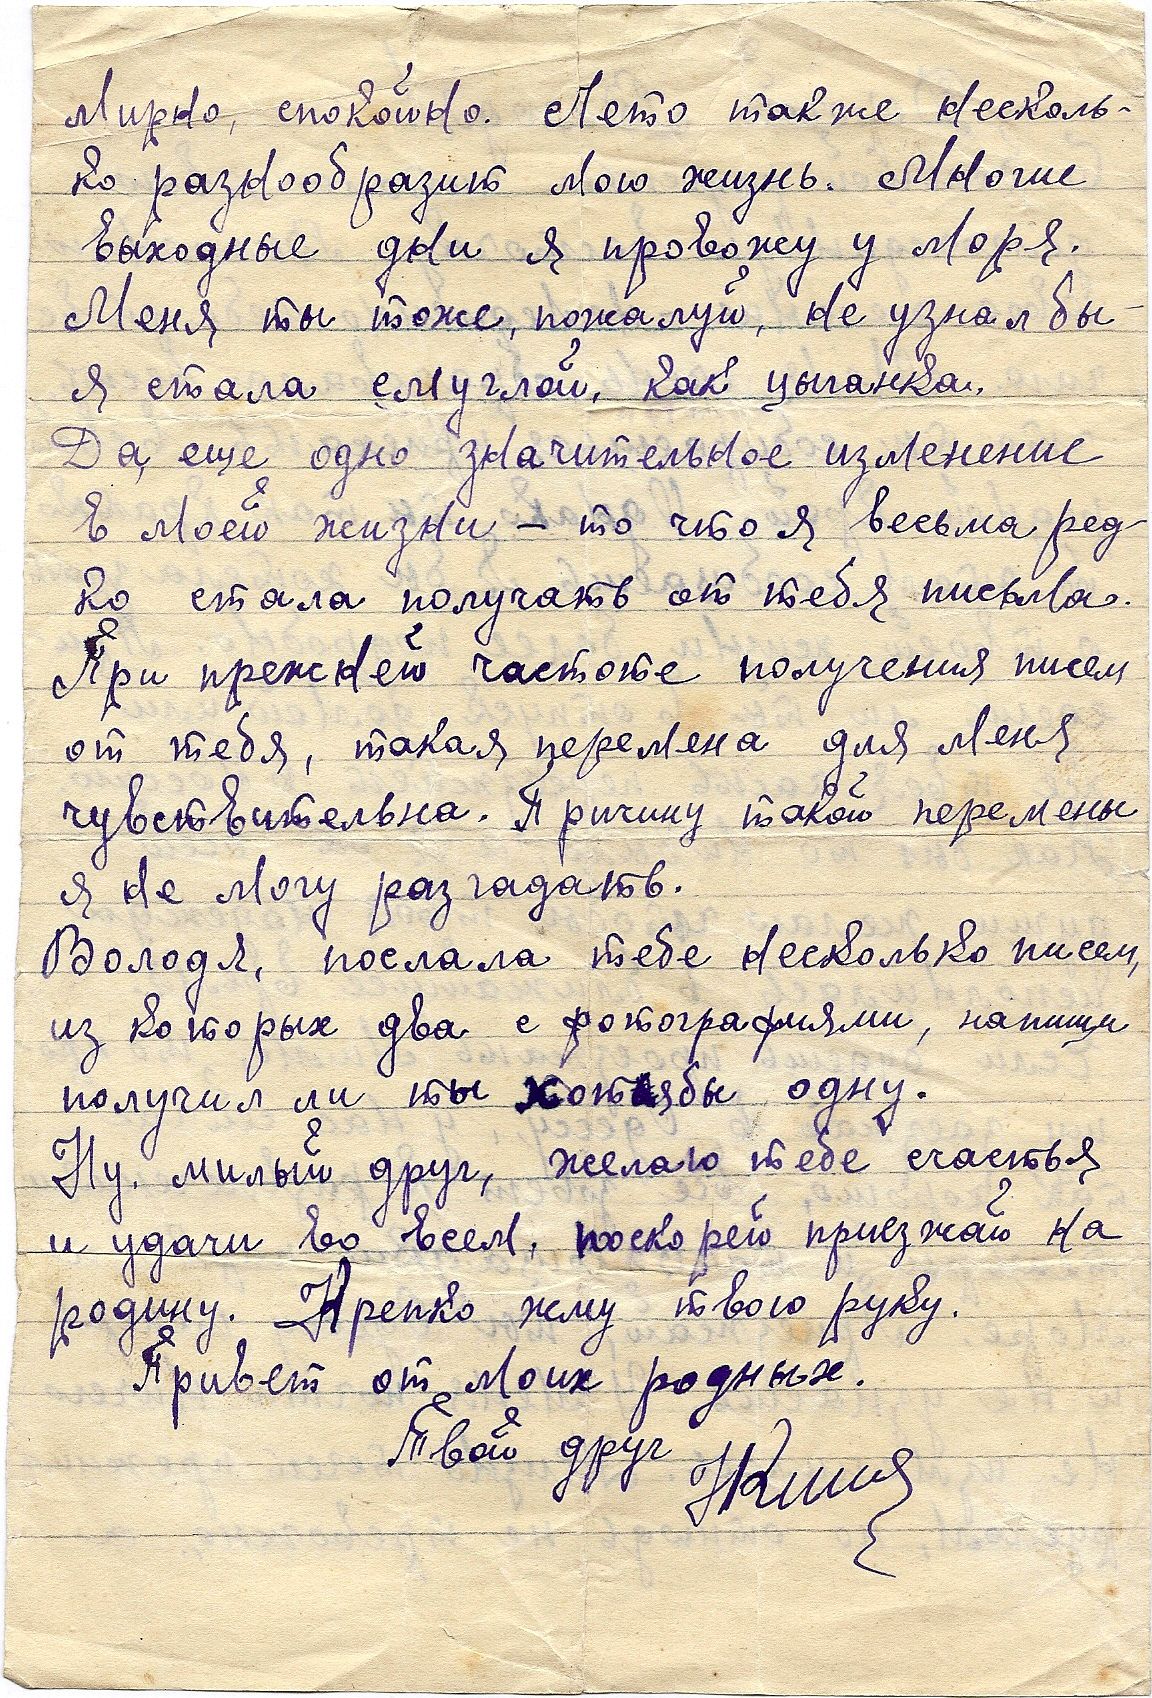 Мирно, спокойно. Лето также несколь-
ко разнообразит мою жизнь. Многие
выходные дни я провожу у моря.
Меня ты тоже, пожалуй, не узнал бы -
я стала смуглой, как цыганка.
Да, еще одно значительное изменение
в моей жизни – то что я весьма ред-
ко стала получать от тебя письма.
При прежней частоте получения писем
от тебя, такая перемена для меня
чувствительна. Причину такой перемены
я не могу разгадать.
Володя, послала тебе несколько писем,
из которых два с фотографиями, напиши
получил ли ты хотябы одну.
Ну, милый друг, желаю тебе счастья
и удачи во всем, поскорей приезжай на
родину. Крепко жму твою руку.
Привет от моих родных.
Твой друг